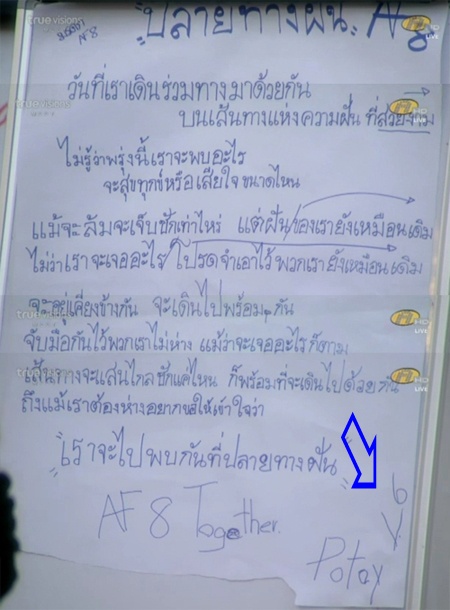 ปลายทางฝัน. AF8
AF8
วันที่เราเดินร่วมทางมาด้วยกัน
บนเส้นทางแห่งความฝัน ที่สวยงาม
ไม่รู้ว่าพรุ่งนี้เราจะพบอะไร
จะสุขทุกข์หรือเสียใจ ขนาดไหน
แม้จะล้มจะเจ็บซักเท่าไหร่ แต่ฝัน/ของเรายังเหมือนเดิม
ไม่ว่าเราจะเจออะไร/โปรดจำเอาไว้ พวกเรายังเหมือนเดิม
จะอยู่เคียงข้างกัน จะเดินไปพร้อมๆ กัน
จับมือกันไว้พวกเราไม่ห่าง แม้ว่าจะเจออะไรก็ตาม
เส้นทางจะแสนไกลซักแค่ไหน ก็พร้อมที่จะเดินไปด้วยกัน
ถึงแม้เราต้องห่างอยากขอให้เข้าใจว่า
"เราจะไปพบกันที่ปลายทางฝัน"
AF8 Together.
Potay
6
V
true visions
HD
LIVE